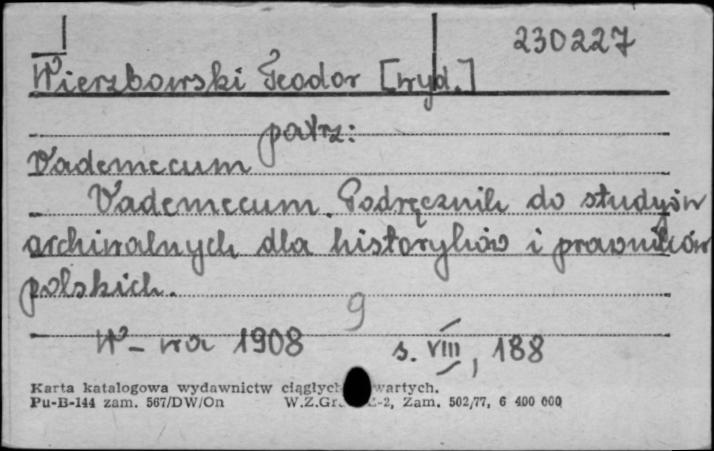 230227
Wierzbowski Teodor [wyd.]
patrz:
Vademecum
Vademecum. Podręcznik do studyów
archiwalnych dla historyków i prawników
polskich.
9
W-wa 1908 s. VIII, 188
Karta katalogowa wydawnictw ciągłych
Pu-B-144 zam. 567/DW/On W.Z.Gr. Zam. 502/77, 6 400 000